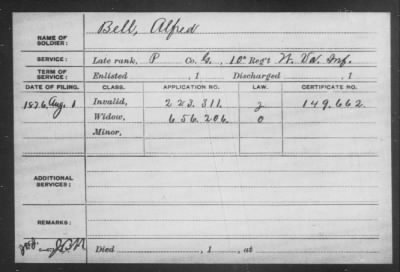 NAME OF SOLDIER: Bell, Alfred
SERVICE: Late rank, P Co. G, 10" Reg't W. Va. Inf.
TERM OF SERVICE: Enlisted , 1 Discharged , 1
DATE OF FILING. CLASS. APPLICATION NO. LAW. CERTIFICATE NO.
1876, Aug. 1 Invalid, 223.311. 2 149.662.
Widow, 656.206. 0
Minor,
ADDITIONAL SERVICES:
REMARKS:
Died , 1 , at